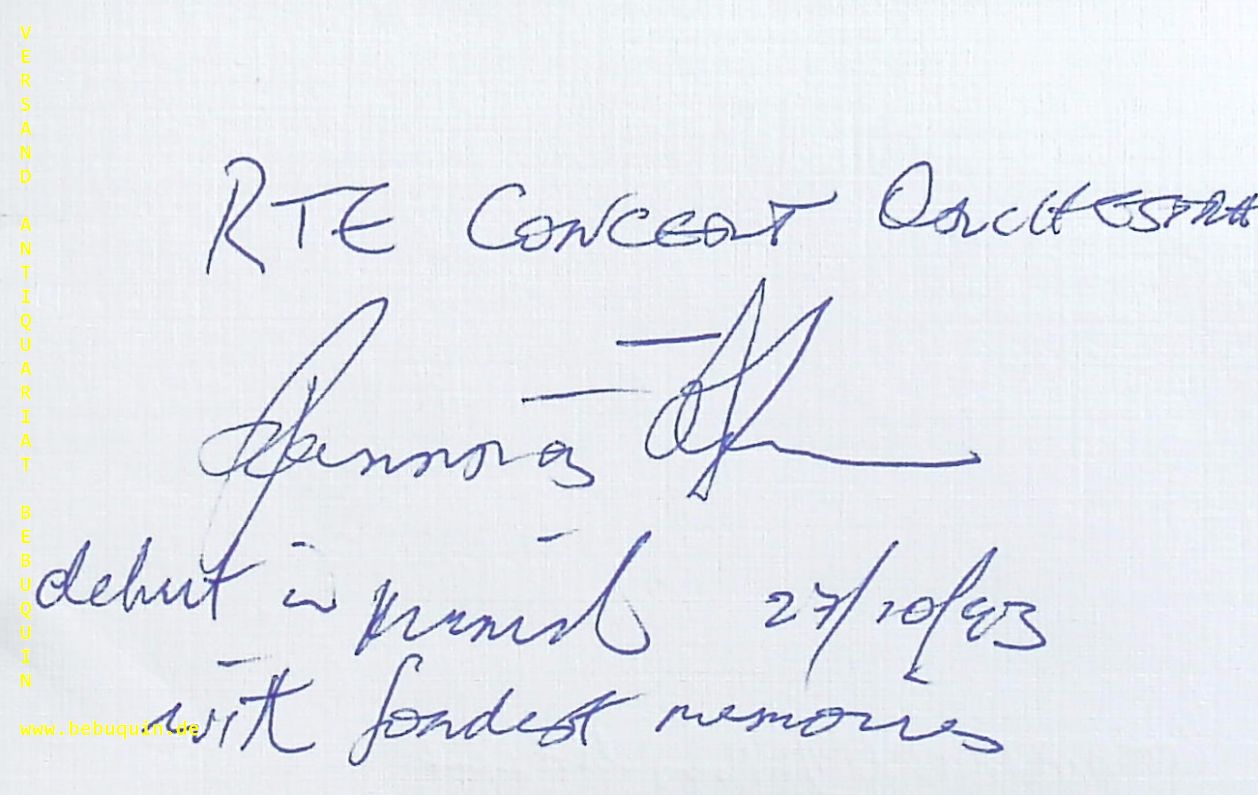 RTE CONCERT ORCHESTRA
debut in Munich 27/10/93
with fondest memories
VERSAND ANTIQUARIAT BEBUQUIN
www.bebuquin.de